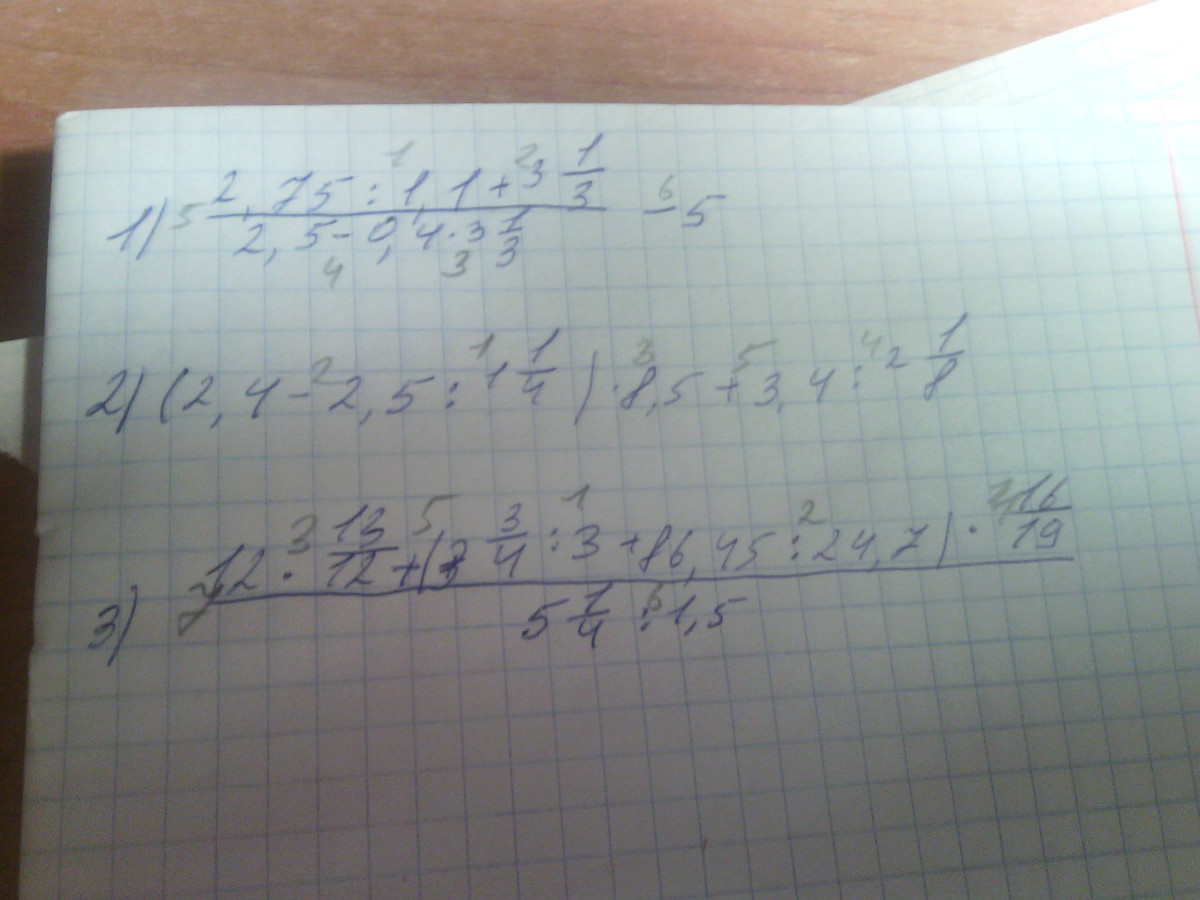 1 2
1) 5 2,75 : 1,1 + 3 1/3 6 - 5
2,5 - 0,4 · 3 1/3
4 3
1 2 3 5 4
2) (2,4 - 2,5 : 1 1/4) · 8,5 + 3,4 : 2 1/8
3 5 1 2
12 · 13/12 + (3 3/4 : 3 + 86,45 : 24,7) · 16/19
3) 5 1/4 : 1,5
6